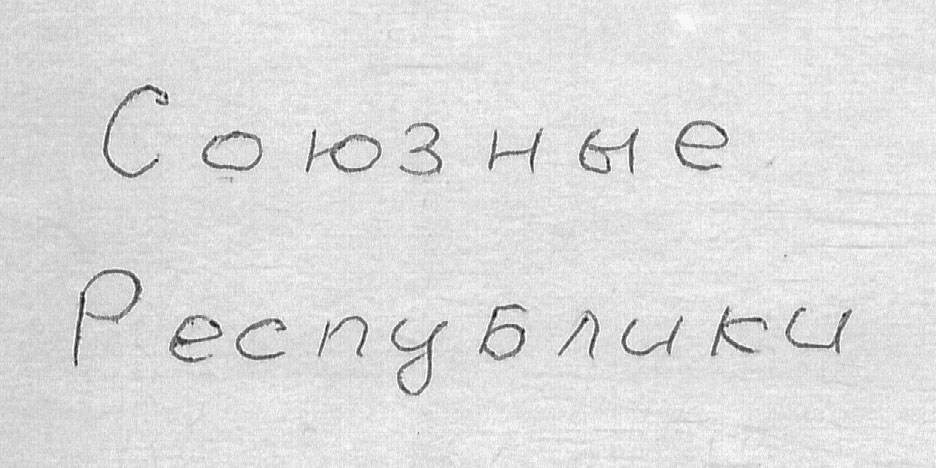 Союзные
Республики